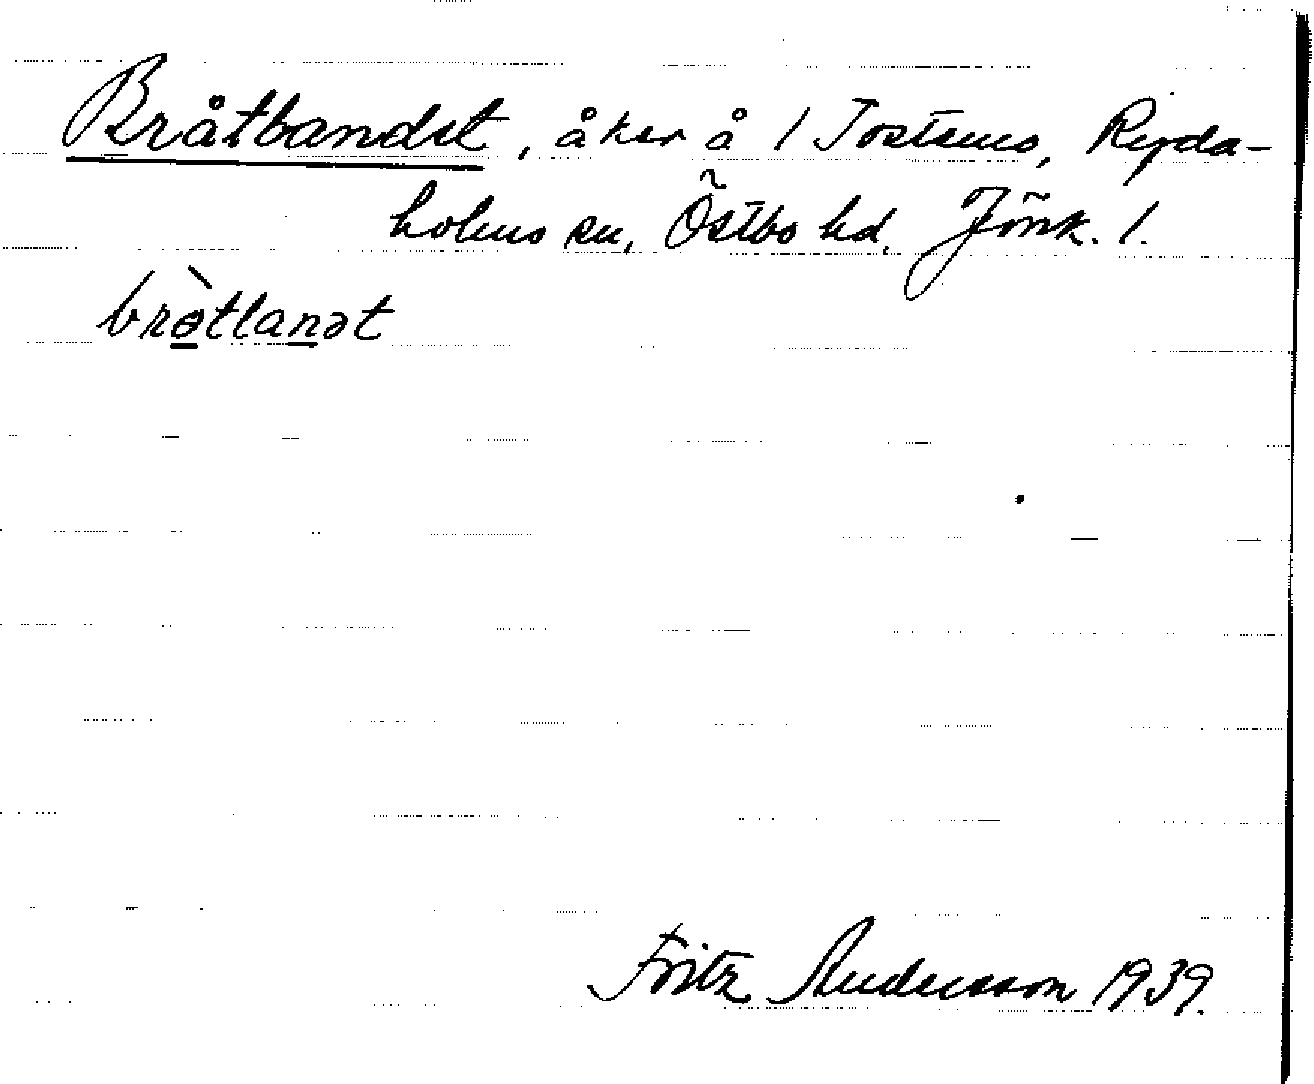 Bråtbandet, åker å 1 Tostems, Ryda-
holms sn, Östbo hd, Jönk. l.
brötlanət
Fritz Andersson 1939.